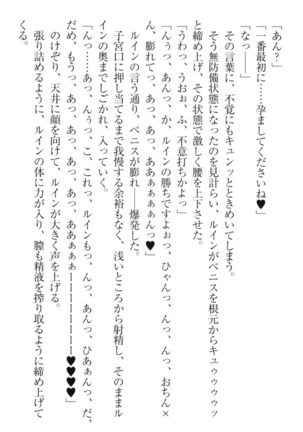 「あん？」
「一番最初に……孕ませてくださいね♥」
「なっ――」
　その言葉に、不覚にもキュンッとときめいてしまう。
　そう無防備状態になったのを見計らい、ルインがペニスを根元からキュゥゥゥゥッ
と締め上げ、その状態で激しく腰を上下させた。
「うわっ、うおぉ、ふ、不意打ちかよ」
「んぅっ、あんっ、か、ルインの勝ちですよぉっ、ひゃんっ、んっ、んっ、おちん×
ん、膨れてっ、あっ、あっ、ああぁぁぁぁんっ♥」
　ルインの言う通り、ペニスが膨れ――爆発した。
　子宮口に押し当てるまで我慢する余裕もなく、浅いところから射精し、そのままル
インの奥までしごかれ、入っていく。
「んっ……あっ、んぁっ、こ、これっ、ルインもっ、んっ、あんっ、ひあぁんっ、だ、
だめ、もうっ、あっ、あっ、あっ、あぁぁぁーーーーーーーーーー♥♥♥♥」
　のけぞり、天井に顔を向けて、ルインが大きく声を上げる。
　張り詰めるように、ルインの体に力が入り、膣も精液を搾り取るように締め上げて
くる。